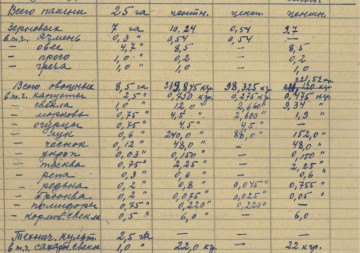 Всего пашни 25 га центн. центн. центн.
Зерновых 7 га 10.24 0,54 9,7
в т.ч. ячмень 0,3 " 0,54 0,54 —
- овес 4,7 " 8,5 — 8,5
- просо 1,0 " 0,2 — 0,2
- греча 1,0 " 1,0 — 1,0
Всего овощных 8,5 га 98,325 кг
в т.ч. капуста 2,5 "
- свекла 1,0 " 12,0 " 2,660 " 9,34 "
- морковь 0,75 " 4,5 " 2,600 " 1,9 "
- огурцы 0,75 " 4,5 " 4,5 " —
- лук 0,6 " 240,0 " 88,0 " 152,0 "
- чеснок 0,12 " 48,0 " — 48,0 "
- укроп 0,03 " 0,150 " — 0,150 "
- тыква 0,75 " 2,25 " — 2,25 "
- репа 0,3 " 0,6 " — 0,6 "
- редька 0,2 " 0,8 " 0,045 " 0,755 "
- брюква 0,2 " 0,075 " 0,025 " 0,05 "
- помидоры 0,75 " 0,220 " 0,220 " —
- кормов. свекла 0,5 " 6,0 — 6,0
Технич. культ. 2,5 га — — —
в т.ч. сахарн. свекла 1,0 " 22,0 кг. — 22 кгр.